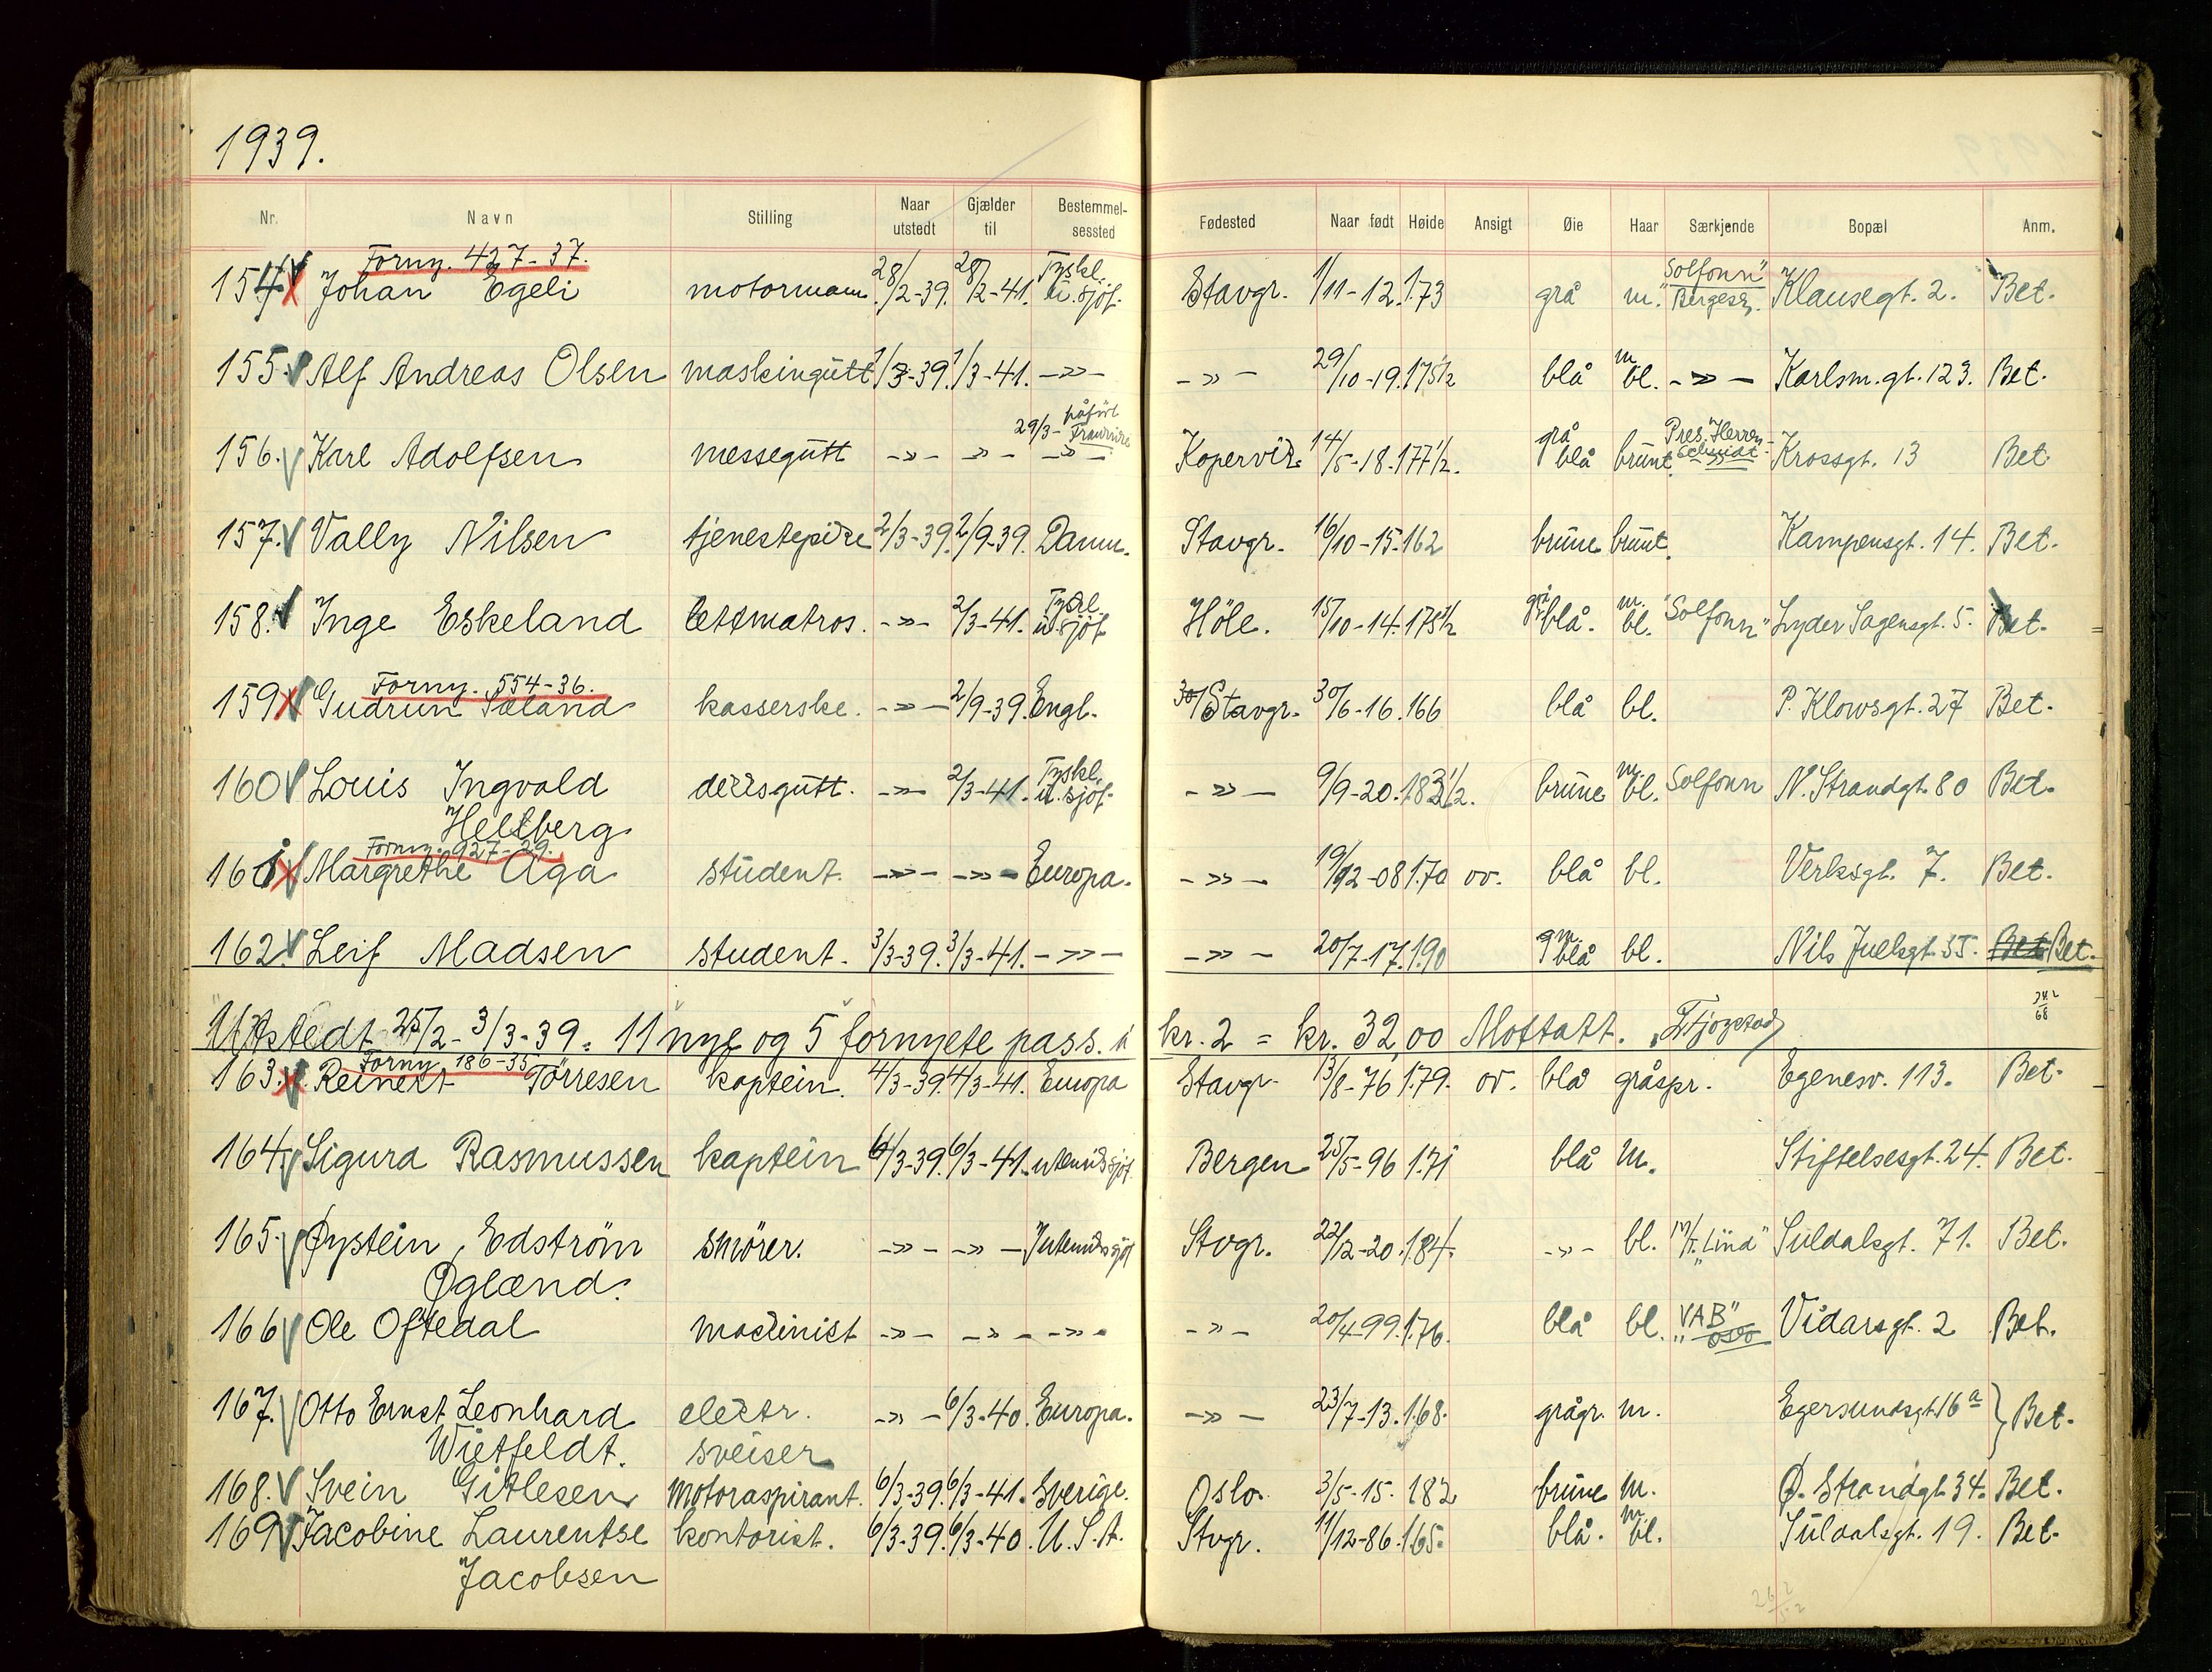 1939.
Nr. Navn Stilling Naar utstedt Gjælder til Bestemmelsessted Fødested Naar født Høide Ansigt Øie Haar Særkjende Bopæl Anm.
Forny. 427-37.
154 Johan Egeli motormann 28/2-39. 28/2-41. Tyskl. u. sjöf. Stavgr. 1/11-12. 1.73 grå m. "Solfonn" Bergesen. Klausegt. 2. Bet.
155. Alf Andreas Olsen maskingutt 1/3-39. 1/3-41. -»- -»- 29/10-19. 175½ blå m bl. -»- Karlsm.gt. 123. Bet.
29/3- påført Frankrike
156. Karl Adolfsen messegutt -»- -»- -»- Kopervik. 14/5-18. 177½. grå blå brunt Pres. Herren-schmidt Krossgt. 13 Bet.
157. Vally Nilsen tjenestepike 2/3-39. 2/9-39. Danm. Stavgr. 16/10-15. 162 brune brunt. Kampensgt. 14. Bet.
158. Inge Eskeland lettmatros. -»- 2/3-41. Tyskl. u. sjöf. Höle. 15/10-14. 175½ grå blå. m. bl. "Solfonn" Lyder Sagensgt. 5. Bet.
Forny. 554-36.
159 Gudrun Sæland kasserske. -»- 2/9-39. Engl. Stavgr. 30/6-16. 166 blå bl. P. Klowsgt. 27 Bet.
160 Louis Ingvald dekksgutt. -»- 2/3-41. Tyskl. u. sjöf. -»- 9/9-20. 183½. brune m. bl. Solfonn N. Strandgt. 80 Bet.
Heltberg
Forny. 927-29.
161 Margrethe Aga student. -»- -»- Europa. -»- 19/12-08 1.70 ov. blå bl. Verksgt. 7. Bet.
162. Leif Madsen student. 3/3-39. 3/3-41. -»- -»- 20/7-17. 1.90 gm. blå bl. Nils Juelsgt. 55. Bet Bet.
Utstedt 25/2-3/3-39. 11 nye og 5 fornyete pass. à kr. 2 = kr. 32,00 Mottatt.
Forny. 186-35
163. Reinert Törresen kaptein. 4/3-39. 4/3-41. Europa Stavgr. 13/8-76 1.79. ov. blå gråspr. Egenesv. 113. Bet.
164. Sigurd Rasmussen kaptein 6/3-39. 6/3-41. utenrikssjöf. Bergen 25/5-96 1.71 blå m. Stiftelsesgt. 24. Bet.
165. Øystein Edström smörer. -»- -»- Utenrikssjöf Stvgr. 22/12-20. 184. -»- bl. M/T. "Lind" Suldalsgt. 71. Bet.
Øglænd.
166 Ole Oftedal maskinist -»- -»- -»- -»- 20/4-99. 1.76. blå bl. "VAB" Oslo Vidarsgt. 2 Bet.
167. Otto Ernst Leonhard elektr. -»- 6/3-40. Europa. -»- 23/7-13. 1.68. grågr. m. Egersundsgt. 16a } Bet.
Wietfeldt. sveiser
168. Svein Gitlesen motoraspirant. 6/3-39. 6/3-41. Sverige. Oslo. 3/5-15. 182 brune m. Ø. Strandgt. 34. Bet.
169 Jacobine Laurentse kontorist. 6/3-39. 6/3-40. U.S.A. Stvgr. 11/12-86. 165. blå. m. bl. Suldalsgt. 19. Bet.
Jacobsen